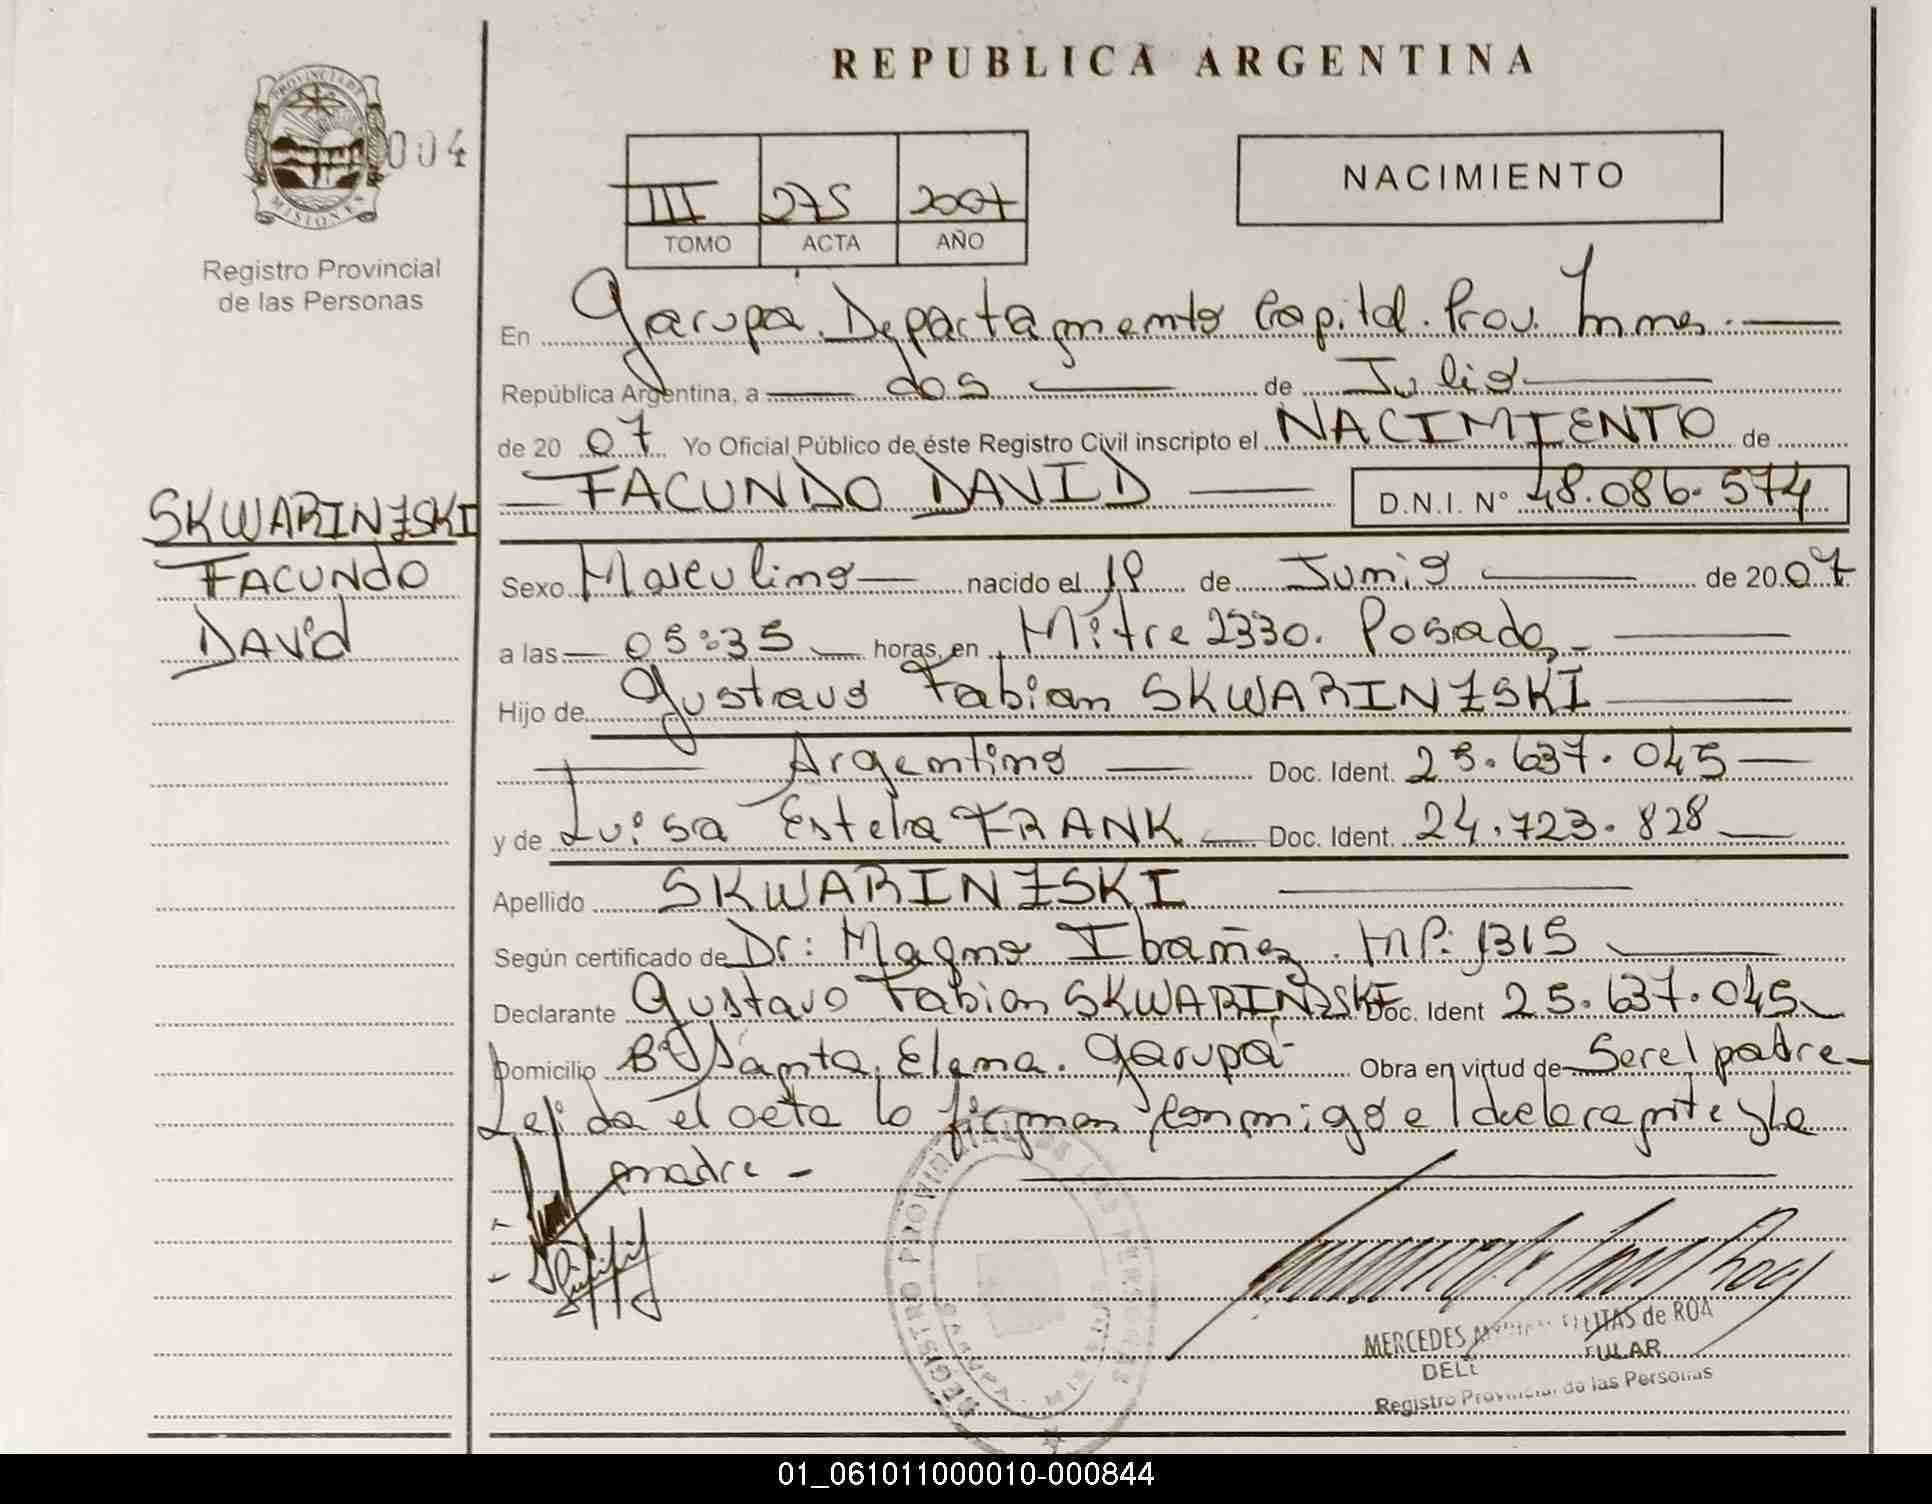 REPUBLICA ARGENTINA
PROVINCIA DE
MISIONES
004
Registro Provincial
de las Personas
III 275 2007
TOMO ACTA AÑO
NACIMIENTO
En Garupa. Departamento Capital. Prov. Mnes.
República Argentina, a dos de Julio
de 2007 Yo Oficial Público de éste Registro Civil inscripto el NACIMIENTO de
FACUNDO DAVID D.N.I. Nº 48.086.574
SKWARINZSKI
FACUNDO
DAVID
Sexo Masculino nacido el 19 de Junio de 2007
a las 05:35 horas, en Mitre 2330. Posadas
Hijo de Gustavo Fabian SKWARINZSKI
Argentino Doc. Ident. 25.637.045
y de Luisa Estela FRANK Doc. Ident. 24.723.828
Apellido SKWARINZSKI
Según certificado de Dr: Magno Ibañez. MP: 1315
Declarante Gustavo Fabian SKWARINZSKI Doc. Ident 25.637.045
Domicilio Bº Santa Elena. Garupá Obra en virtud de Ser el padre
Leída el acta la firman conmigo el declarante y la
madre -
REGISTRO PROVINCIAL DE LAS PERSONAS
GARUPA MISIONES
MERCEDES de ROA
Registro Provincial de las Personas
01_061011000010-000844